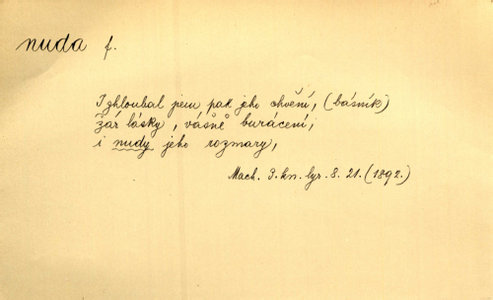 nuda f.
Izhloubal jsem pak jeho chvění, (básník)
zář lásky, vášně burácení,
i nudy jeho rozmary,
Mach. 3. kn. lyr. 8. 21. (1892.)